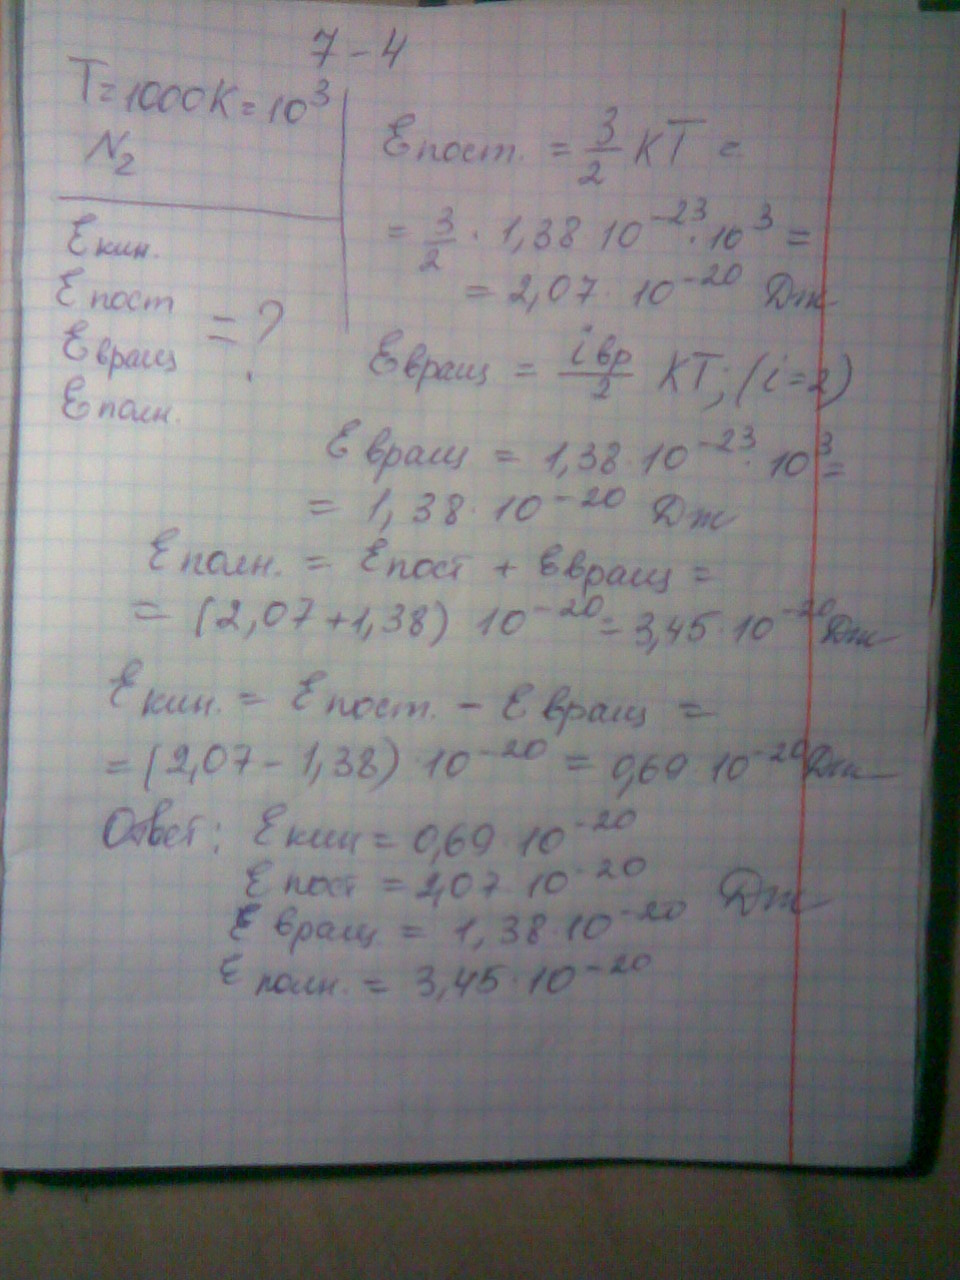 7 - 4
T = 1000K = 10³
N₂
Eкин.
Eпост
Eвращ = ?
Eполн.
Eпост. = 3/2 KT =
= 3/2 · 1,38 10⁻²³ · 10³ =
= 2,07 · 10⁻²⁰ Дж
Eвращ = iвр/2 KT; (i=2)
Eвращ = 1,38 · 10⁻²³ · 10³ =
= 1,38 · 10⁻²⁰ Дж
Eполн. = Eпост + Eвращ =
= (2,07 + 1,38) 10⁻²⁰ = 3,45 · 10⁻²⁰ Дж
Eкин. = Eпост. - Eвращ =
= (2,07 - 1,38) · 10⁻²⁰ = 0,69 · 10⁻²⁰ Дж
Ответ: Eкин = 0,69 · 10⁻²⁰
Eпост = 2,07 · 10⁻²⁰ Дж
Eвращ. = 1,38 · 10⁻²⁰
Eполн. = 3,45 · 10⁻²⁰